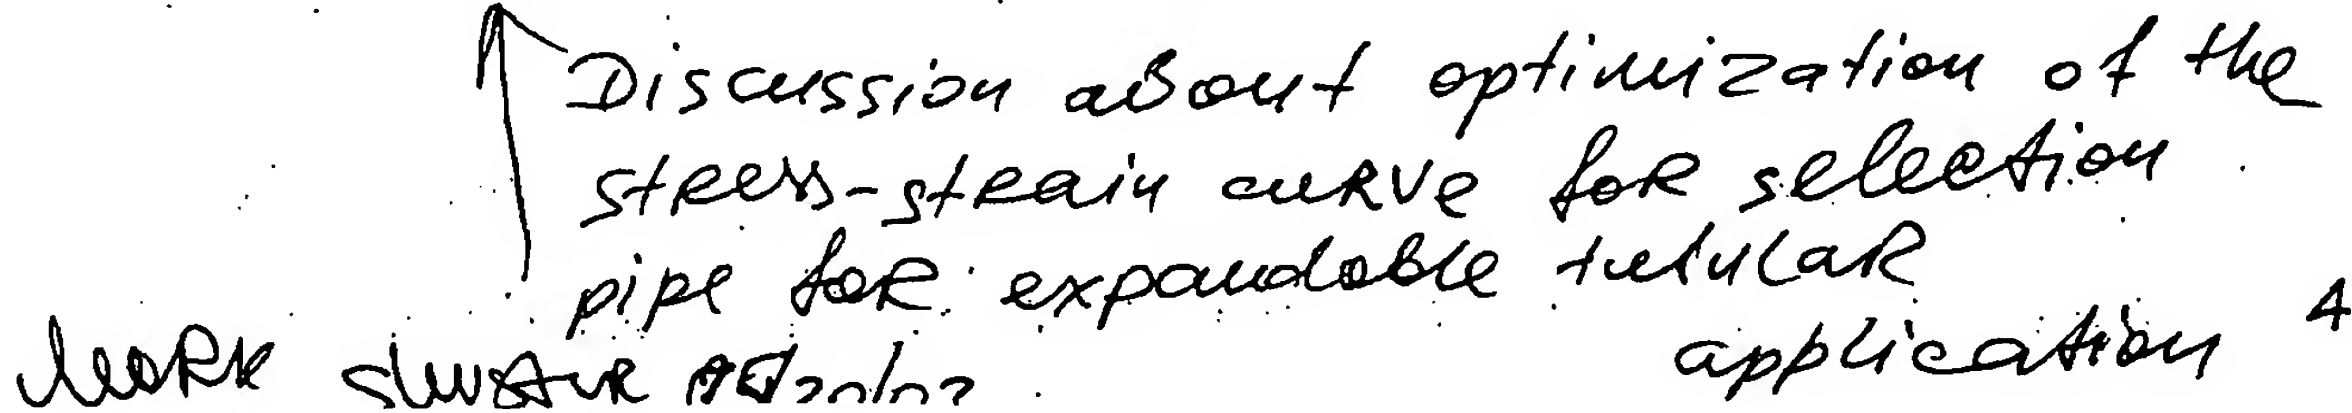 Discussion about optimization of the
stress-strain curve for selection
pipe for expandable tubular
application 4
Mark